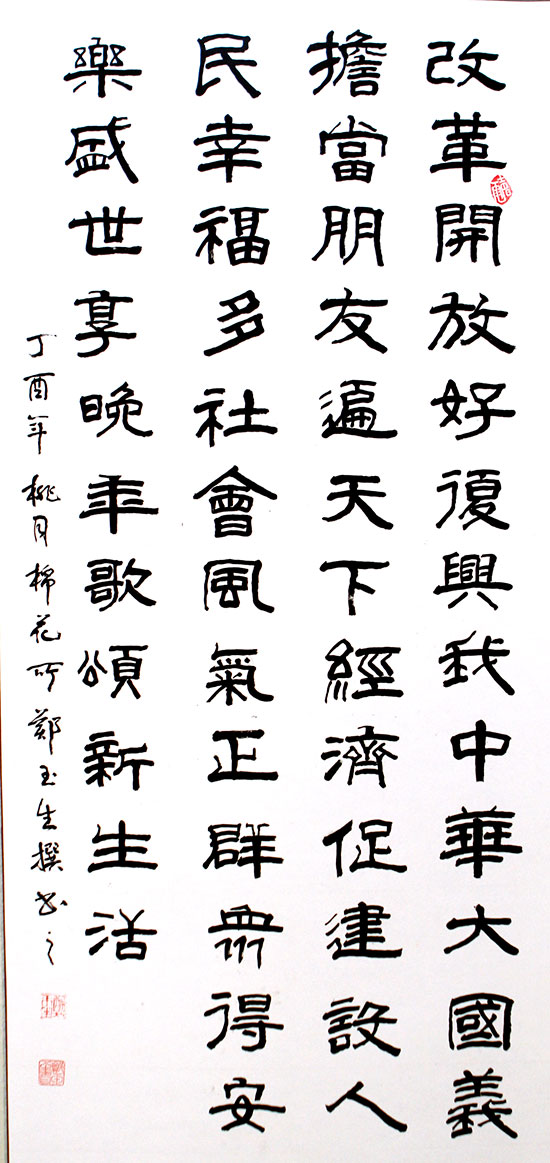 改革開放好復興我中華大國義
擔當朋友遍天下經濟促建設人
民幸福多社會風氣正群眾得安
樂盛世享晚年歌頌新生活
丁酉年桃月棉花所鄭玉生撰书之